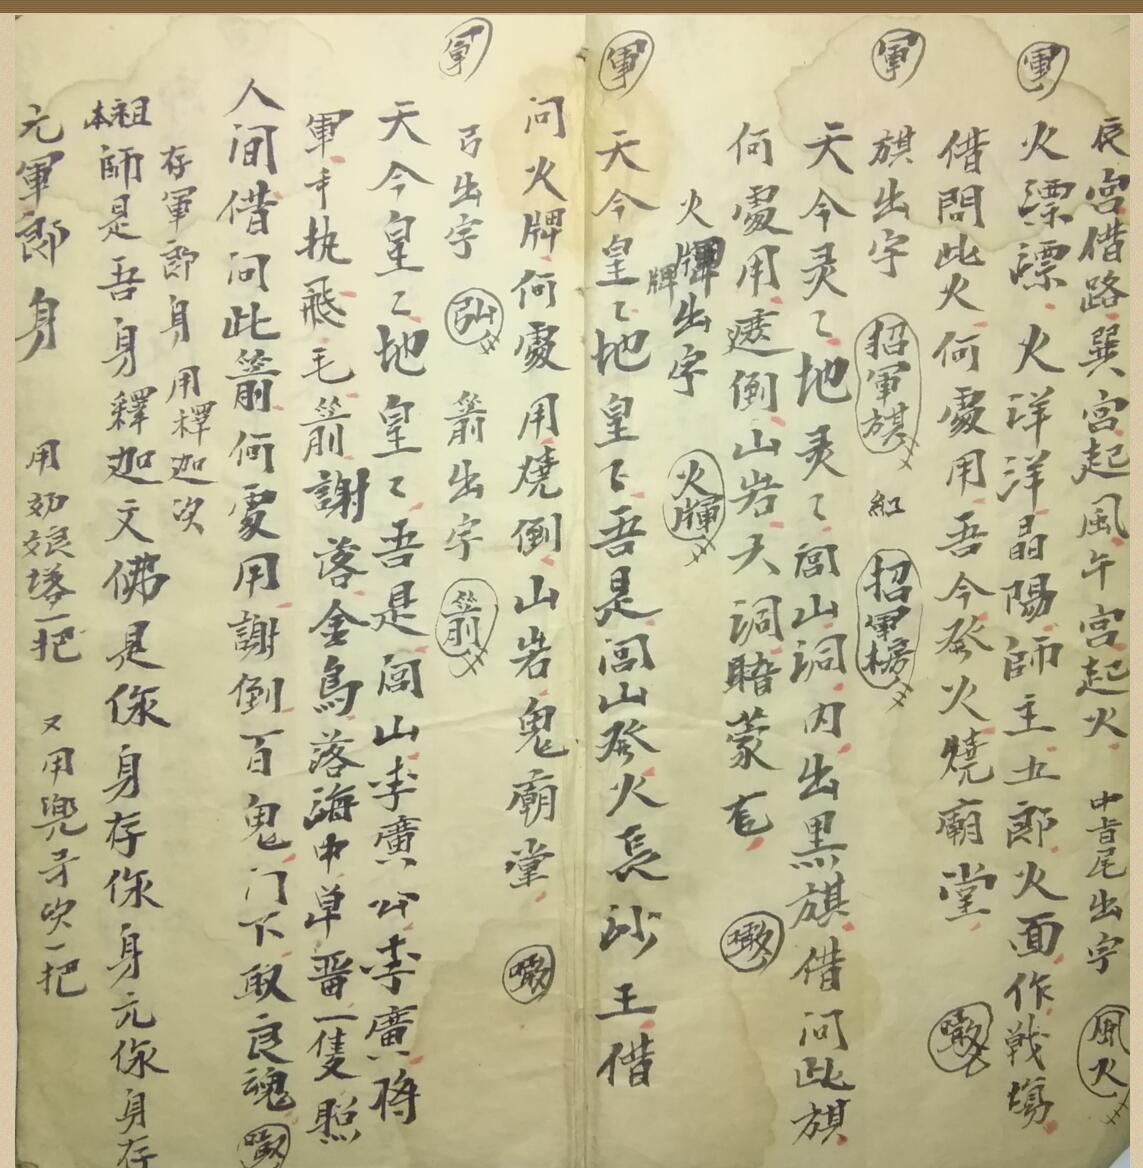 辰宮借路巽宮起風午宮起火 中旨尾出字 風火
軍 火漂漂火洋洋晶陽師主五郎火面作戰場
借問此火何處用吾今發火燒廟堂
軍 旗出字 招軍旗 紅 招軍榜
天今灵〻地灵〻閭山洞内出黑旗借问此旗
何處用遮倒山岩大洞暗蒙
火牌出字 火
軍 天今皇〻地皇〻吾是閭山發火長沙王借
问火牌何處用燒倒山岩鬼廟堂
軍 弓出字 弘 箭出字 箭
天今皇〻地皇〻吾是閭山李廣公李廣將
軍手执飛毛箭謝落金鳥落海中单晋一隻照
人间借问此箭何處用謝倒百鬼门下取良魂
存軍郎身 用釋迦次
本祖師是吾身釋迦文佛是你身存你身元你身存
元軍郎身 用一把 又用兜牙次一把